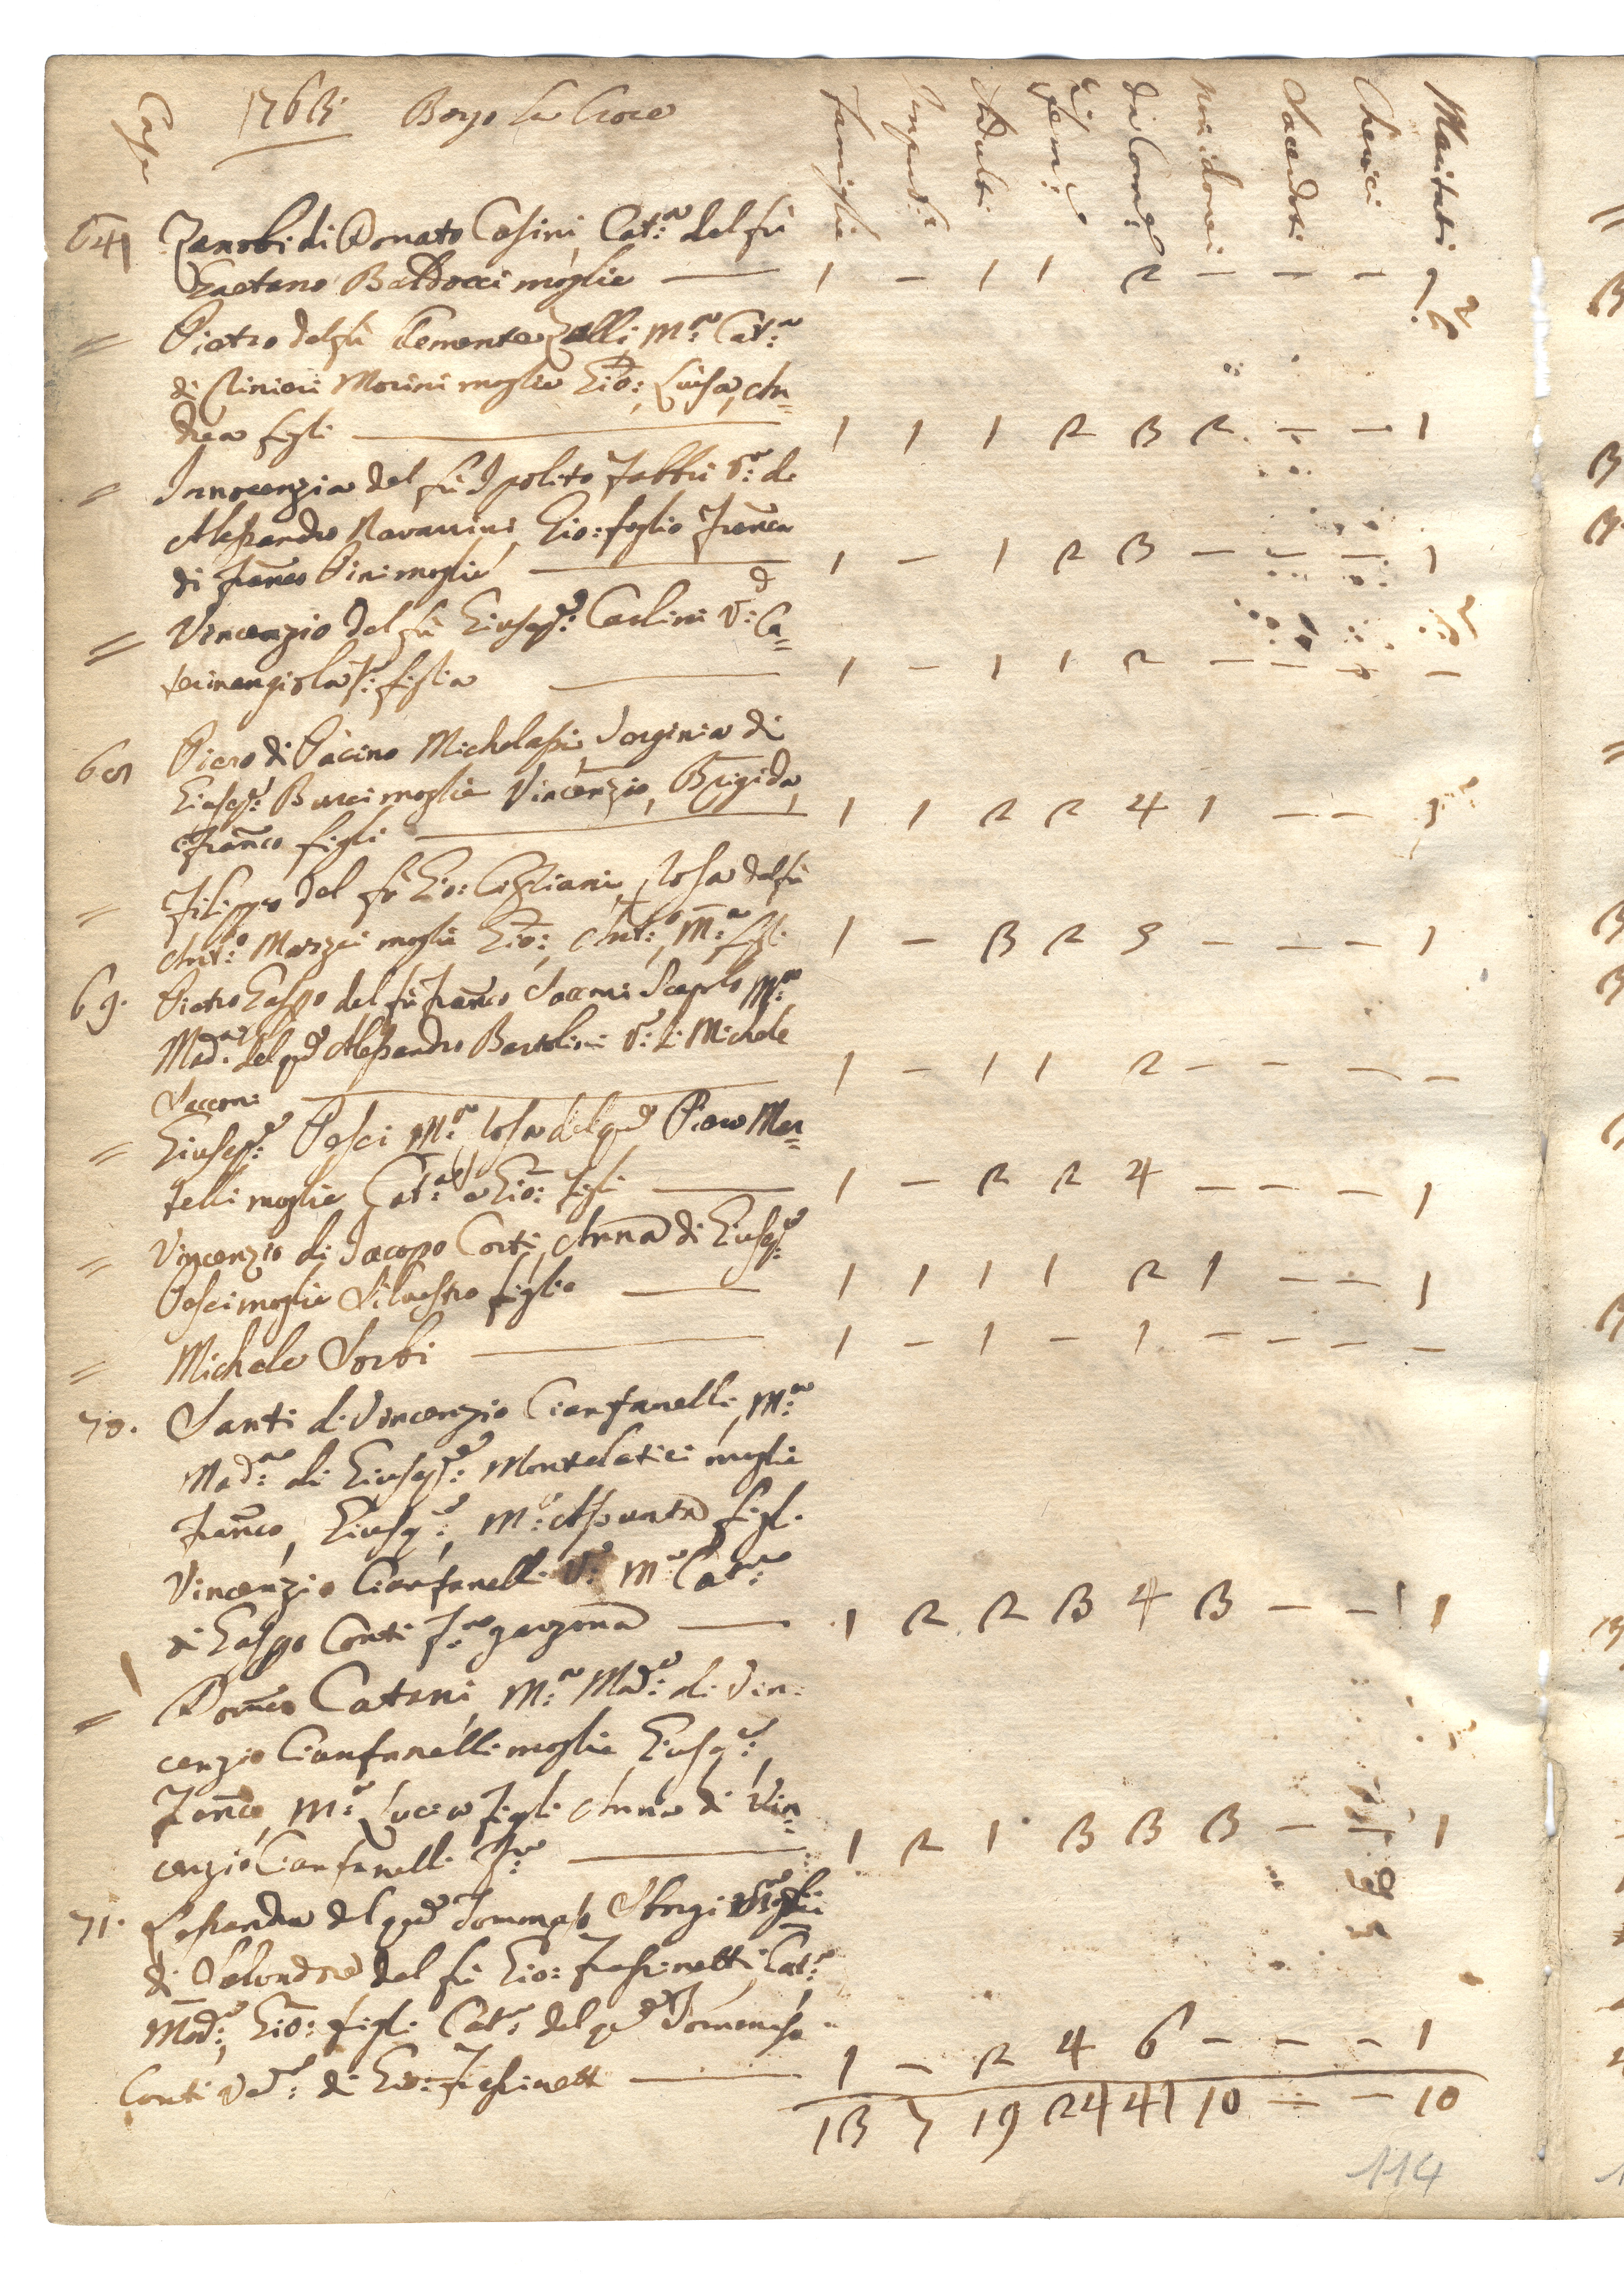 Case 1763 Borgo La Croce Famiglie Impub:i Adulti Fem:e da Com:e non idonei Sacerdoti Cherici Maritati
641 Zanobi di Donato Casini, Cat:a del fù
Gaetano Baldocci moglie — 1 — 1 1 2 — — — 1
= Pietro del fù Clemente Zelli, M:a Cat:a
di Rinieri Morini moglie Gio:, Luisa, An=
drea figli — 1 1 1 2 3 2 — — 1
= Innocenzia del fù Ipolito Fabbri V:a di
Alessandro Ravannini, Gio: foglio Franca
di Franco Pini moglie — 1 — 1 2 3 — — — 1
= Vincenzio del fù Giusep:e Carlini V:d Ca=
terinangiola f:a figlia — 1 — 1 1 2 — — — —
68 Piero di Pacino Michelassi, Verginia di
Giusep:e Bucci moglie Vincenzio, Brigida,
e Franco figli — 1 1 2 2 4 1 — — 1
= Filippo del fù Gio: Cigliani, Rosa del fù
Ant:o Marzzi moglie Gio:, Ant:o, M:a figli 1 — 3 2 5 — — — 1
69. Pietro Gaspo del fù Franco Sacconi Scapolo M:a
Mad:a del q:d Alessandro Bartolini V:a di Michele
Sacconi — 1 — 1 1 2 — — — —
= Giusep:e Pesci M:a Rosa del q:d Piero Mar=
telli moglie Cat:a e Gio: figli — 1 — 2 2 4 — — — 1
= Vincenzio di Jacopo Corti, Anna di Giusep:e
Pesci moglie Silvestro figlio — 1 1 1 1 2 1 — — 1
= Michele Sorbi — 1 — 1 — 1 — — — —
70. Santi di Vincenzio Cianfanelli, M:a
Mad:a di Giusep:e Montelatici moglie
Franco, Giusep:e, M:a Assunta figli
Vincenzio Cianfanelli V:o M:a Cat:a
di Gaspo Conti f:a garzona — 1 2 2 3 4 3 — — 1 1
= Domco Catani, M:a Mad:a di Vin=
cenzio Cianfanelli moglie Giusep:e,
Franco, M:a Lucia figli Anna di Vin=
cenzio Cianfanelli f:a — 1 2 1 3 3 3 — — 1
71. Lessandra del q:d Tommaso Sborgi
di Salvadore del fù Gio: Freschinetti, Cat:a
Mad:a, Gio: figli Cat:a del q:d Tommaso
Conti Ved:a di Gio: Freschinett — 1 — 2 4 6 — — — 1
13 7 19 24 41 10 — — 10
114